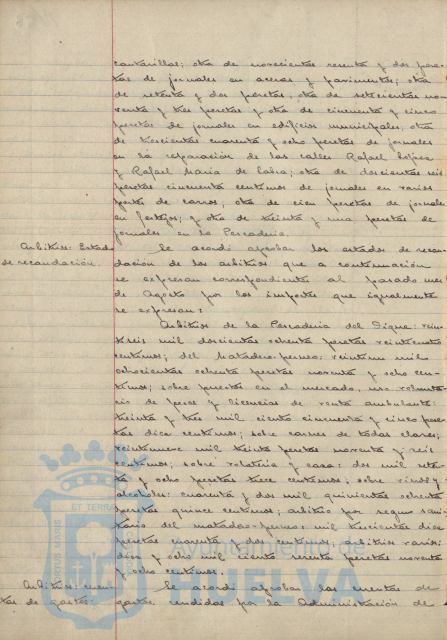 cantarillas; otra de novecientas sesenta y dos pese-
tas de jornales en aceras y pavimentos; otra
de setenta y dos pesetas, otra de setecientas no-
venta y tres pesetas y otra de cincuenta y cinco
pesetas de jornales en edificios municipales, otra
de trescientas cuarenta y ocho pesetas de jornales
en la reparación de las calles Rafael López
y Rafael María de Labra; otra de doscientas seis
pesetas cincuenta centimos de jornales en varios
portes de carros; otra de cien pesetas de jornales
en festejos; y otra de treinta y una pesetas de
jornales en la Pescaderia.
Arbitrios: Estados
de recaudación.
Se acordó aprobar los estados de recau-
dación de los arbitrios que a continuación
se expresan correspondientes al pasado mes
de Agosto por los importes que igualmente
se expresan:
Arbitrios de la Pescaderia del Dique: vein-
tiseis mil doscientas ochenta pesetas veinticuatro
centimos; del Matadero-permeo: veintiun mil
ochocientas ochenta pesetas noventa y ocho cen-
timos; sobre puestos en el mercado, uso volunta-
rio de pesas y licencias de venta ambulante:
treinta y tres mil ciento cincuenta y cinco pese-
tas diez centimos; sobre carnes de todas clases;
veintinueve mil treinta pesetas noventa y seis
centimos; sobre volateria y caza: dos mil seten-
ta y ocho pesetas trece centimos; sobre vinos y
alcoholes: cuarenta y dos mil quinientas ochenta
pesetas quince centimos; arbitrio por reguo sani-
tario del matadero: mil trescientas diez
pesetas cuarenta y dos centimos; arbitrios varios:
diez y ocho mil ciento sesenta pesetas noventa
y ocho centimos.
Arbitrios: cuen-
tas de gastos.
Se acordó aprobar las cuentas de
gastos rendidas por la Administración de
ET TERRAE
Ayuntamiento de
HUELVA